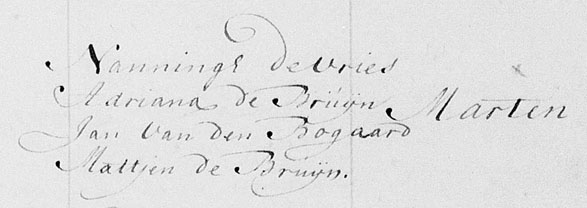 Nannings de Vries
Adriana de Brüÿn
Jan Van den Bogaard
Maltjen de Brüÿn.
Marten